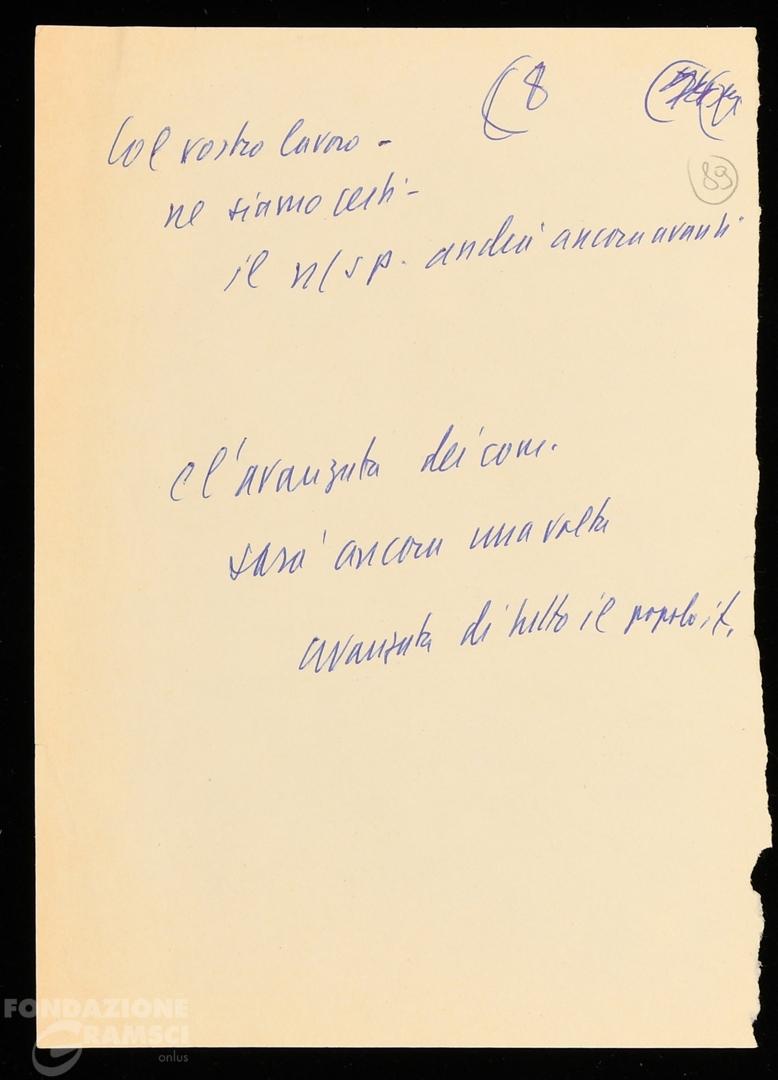 (8
89
Col vostro lavoro -
ne siamo certi -
il n/s p. andrà ancora avanti
e l'avanzata dei com.
sarà ancora una volta
avanzata di tutto il popolo it.
FONDAZIONE
GRAMSCI
onlus